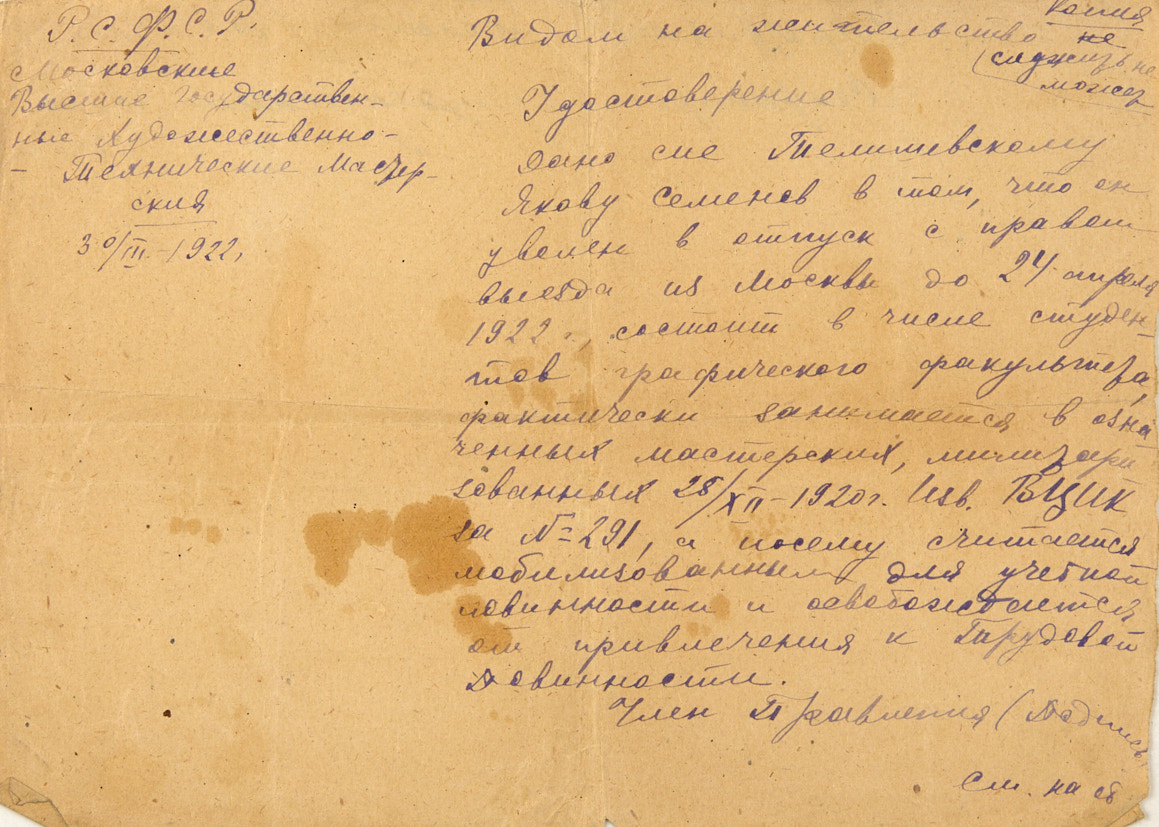 Р. С. Ф. С. Р.
Московские
Высшие Государствен-
ные Художественно-
- Технические Мастер-
ския
30/III - 1922,
Копия
Видом на жительство не
служить не
может
Удостоверение
Дано сие Телишевскому
Якову Семенов в том, что он
уволен в отпуск с правом
выезда из Москвы до 24 апреля
1922 г., состоит в числе студен-
тов графического факультета,
фактически занимается в озна
ченных мастерских, милитари
зованных 28/XII - 1920 г. Изв. ВЦИК
за № 291, а посему считается
мобилизованным для учебной
повинности и освобождается
от привлечения к Трудовой
Повинности.
Член Правления (Подпись
См. на об